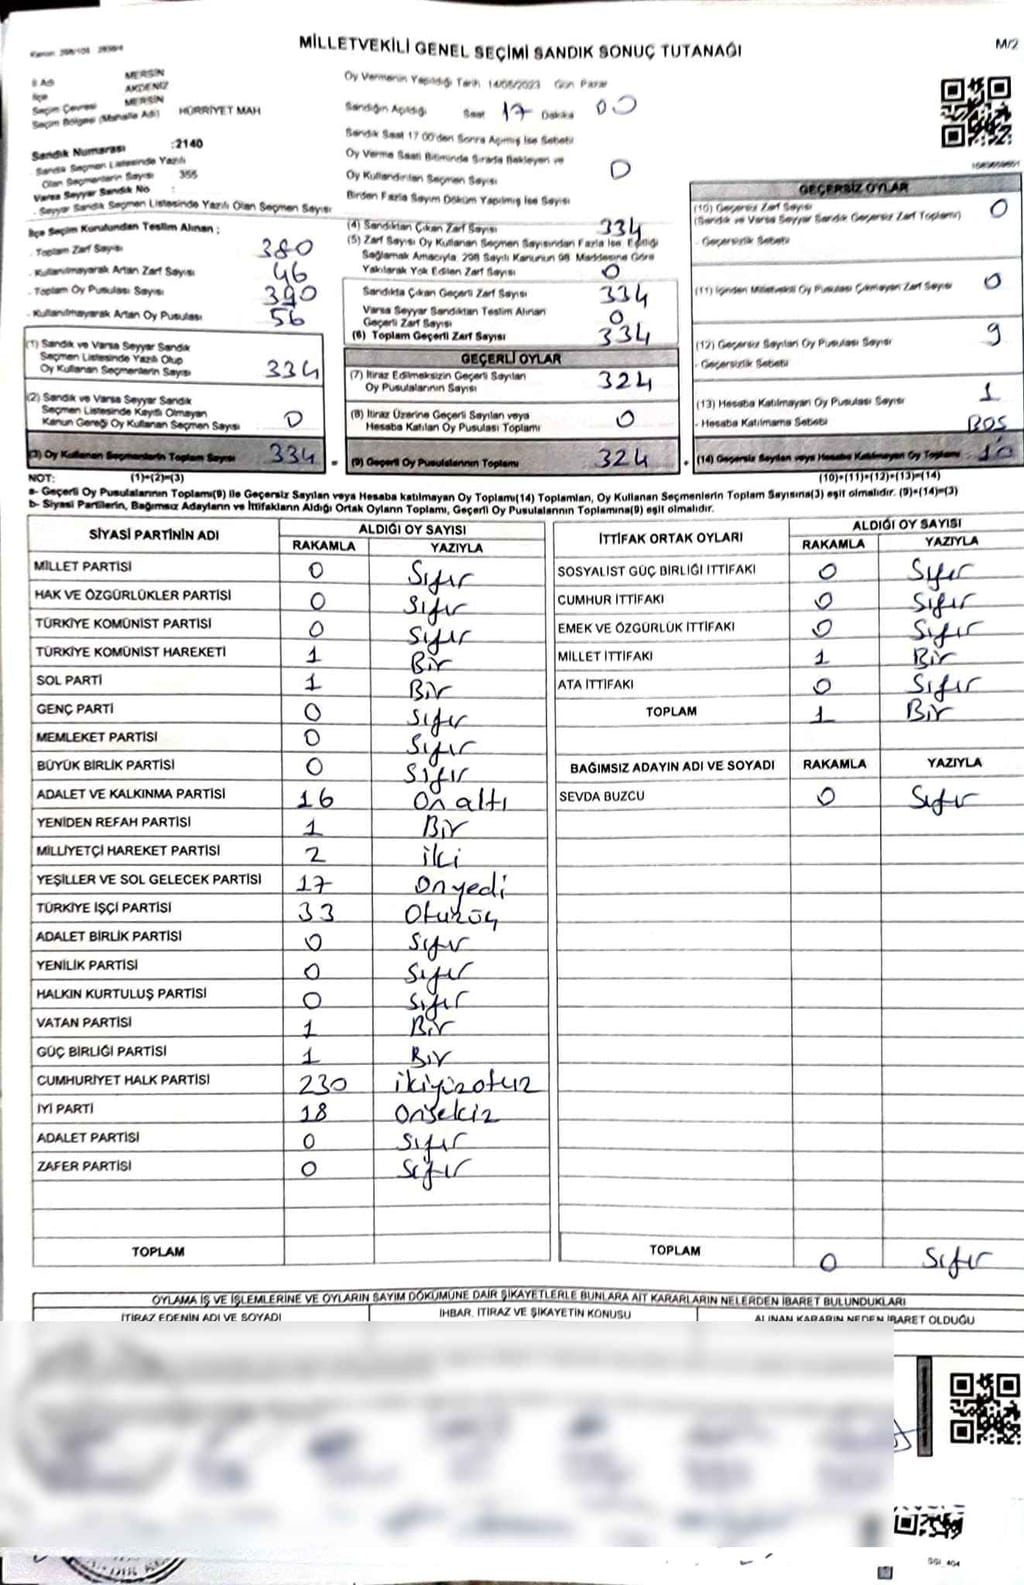 MİLLETVEKİLİ GENEL SEÇİMİ SANDIK SONUÇ TUTANAĞI
M/2
İl Adı MERSİN
İlçe AKDENİZ
Seçim Çevresi MERSİN
Seçim Bölgesi (Mahalle Adı) HÜRRİYET MAH
Sandık Numarası :2140
Sandık Seçmen Listesinde Yazılı
Olan Seçmenlerin Sayısı 355
Varsa Seyyar Sandık No :
- Seyyar Sandık Seçmen Listesinde Yazılı Olan Seçmen Sayısı
Oy Vermenin Yapıldığı Tarih 14/05/2023 Gün Pazar
Sandığın Açıldığı Saat 17 Dakika 00
Sandık Saat 17.00'den Sonra Açılmış İse Sebebi
Oy Verme Saati Bitiminde Sırada Bekleyen ve
Oy Kullandırılan Seçmen Sayısı 0
Birden Fazla Sayım Döküm Yapılmış İse Sayısı
İlçe Seçim Kurulundan Teslim Alınan ;
- Toplam Zarf Sayısı 380
- Kullanılmayarak Artan Zarf Sayısı 46
- Toplam Oy Pusulası Sayısı 390
- Kullanılmayarak Artan Oy Pusulası 56
(1) Sandık ve Varsa Seyyar Sandık
Seçmen Listesinde Yazılı Olup
Oy Kullanan Seçmenlerin Sayısı 334
(2) Sandık ve Varsa Seyyar Sandık
Seçmen Listesinde Kayıtlı Olmayan
Kanun Gereği Oy Kullanan Seçmen Sayısı 0
(3) Oy Kullanan Seçmenlerin Toplam Sayısı 334
(4) Sandıktan Çıkan Zarf Sayısı 334
(5) Zarf Sayısı Oy Kullanan Seçmen Sayısından Fazla İse, Eşitliği
Sağlamak Amacıyla, 298 Sayılı Kanunun 98. Maddesine Göre
Yakılarak Yok Edilen Zarf Sayısı 0
Sandıkta Çıkan Geçerli Zarf Sayısı 334
Varsa Seyyar Sandıktan Teslim Alınan
Geçerli Zarf Sayısı 0
(6) Toplam Geçerli Zarf Sayısı 334
GEÇERLİ OYLAR
(7) İtiraz Edilmeksizin Geçerli Sayılan
Oy Pusulalarının Sayısı 324
(8) İtiraz Üzerine Geçerli Sayılan veya
Hesaba Katılan Oy Pusulası Toplamı 0
(9) Geçerli Oy Pusulalarının Toplamı 324
GEÇERSİZ OYLAR
(10) Geçersiz Zarf Sayısı 0
(Sandık ve Varsa Seyyar Sandık Geçersiz Zarf Toplamı)
- Geçersizlik Sebebi
(11) İçinden Milletvekili Oy Pusulası Çıkmayan Zarf Sayısı 0
(12) Geçersiz Sayılan Oy Pusulası Sayısı 9
- Geçersizlik Sebebi
(13) Hesaba Katılmayan Oy Pusulası Sayısı 1
- Hesaba Katılmama Sebebi BOŞ
(14) Geçersiz Sayılan veya Hesaba Katılmayan Oy Toplamı 10
NOT: (1)+(2)=(3) (10)+(11)+(12)+(13)=(14)
a- Geçerli Oy Pusulalarının Toplamı(9) ile Geçersiz Sayılan veya Hesaba katılmayan Oy Toplamı(14) Toplamları, Oy Kullanan Seçmenlerin Toplam Sayısına(3) eşit olmalıdır. (9)+(14)=(3)
b- Siyasi Partilerin, Bağımsız Adayların ve İttifakların Aldığı Ortak Oyların Toplamı, Geçerli Oy Pusulalarının Toplamına(9) eşit olmalıdır.
SİYASİ PARTİNİN ADI ALDIĞI OY SAYISI
RAKAMLA YAZIYLA
MİLLET PARTİSİ 0 Sıfır
HAK VE ÖZGÜRLÜKLER PARTİSİ 0 Sıfır
TÜRKİYE KOMÜNİST PARTİSİ 0 Sıfır
TÜRKİYE KOMÜNİST HAREKETİ 1 Bir
SOL PARTİ 1 Bir
GENÇ PARTİ 0 Sıfır
MEMLEKET PARTİSİ 0 Sıfır
BÜYÜK BİRLİK PARTİSİ 0 Sıfır
ADALET VE KALKINMA PARTİSİ 16 On altı
YENİDEN REFAH PARTİSİ 1 Bir
MİLLİYETÇİ HAREKET PARTİSİ 2 iki
YEŞİLLER VE SOL GELECEK PARTİSİ 17 Onyedi
TÜRKİYE İŞÇİ PARTİSİ 33 Otuzüç
ADALET BİRLİK PARTİSİ 0 Sıfır
YENİLİK PARTİSİ 0 Sıfır
HALKIN KURTULUŞ PARTİSİ 0 Sıfır
VATAN PARTİSİ 1 Bir
GÜÇ BİRLİĞİ PARTİSİ 1 Bir
CUMHURİYET HALK PARTİSİ 230 ikiyüzotuz
İYİ PARTİ 18 Onsekiz
ADALET PARTİSİ 0 Sıfır
ZAFER PARTİSİ 0 Sıfır
TOPLAM
İTTİFAK ORTAK OYLARI ALDIĞI OY SAYISI
RAKAMLA YAZIYLA
SOSYALİST GÜÇ BİRLİĞİ İTTİFAKI 0 Sıfır
CUMHUR İTTİFAKI 0 Sıfır
EMEK VE ÖZGÜRLÜK İTTİFAKI 0 Sıfır
MİLLET İTTİFAKI 1 Bir
ATA İTTİFAKI 0 Sıfır
TOPLAM 1 Bir
BAĞIMSIZ ADAYIN ADI VE SOYADI RAKAMLA YAZIYLA
SEVDA BUZCU 0 Sıfır
TOPLAM 0 Sıfır
OYLAMA İŞ VE İŞLEMLERİNE VE OYLARIN SAYIM DÖKÜMÜNE DAİR ŞİKAYETLERLE BUNLARA AİT KARARLARIN NELERDEN İBARET BULUNDUKLARI
İTİRAZ EDENİN ADI VE SOYADI İHBAR, İTİRAZ VE ŞİKAYETİN KONUSU ALINAN KARARIN NEDEN İBARET OLDUĞU